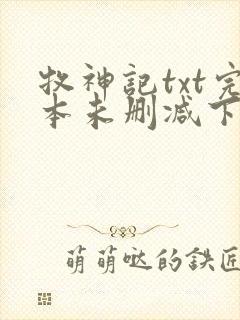 牧神記txt完
本未删减下
萌萌哒的鉄匠